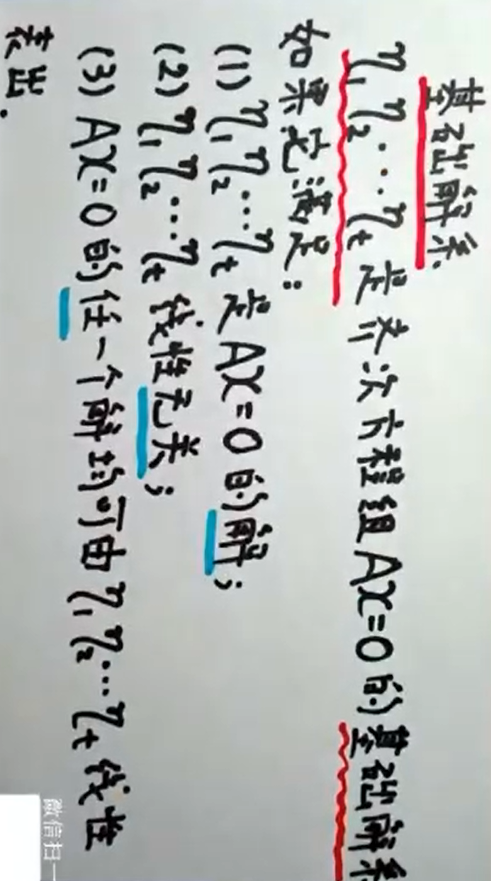 基础解系.
η₁ η₂ … ηₜ 是齐次方程组 AX=0 的基础解系
如果它满足:
(1) η₁ η₂ … ηₜ 是 AX=0 的解;
(2) η₁ η₂ … ηₜ 线性无关;
(3) AX=0 的任一个解均可由 η₁ η₂ … ηₜ 线性
表出.
微信扫一